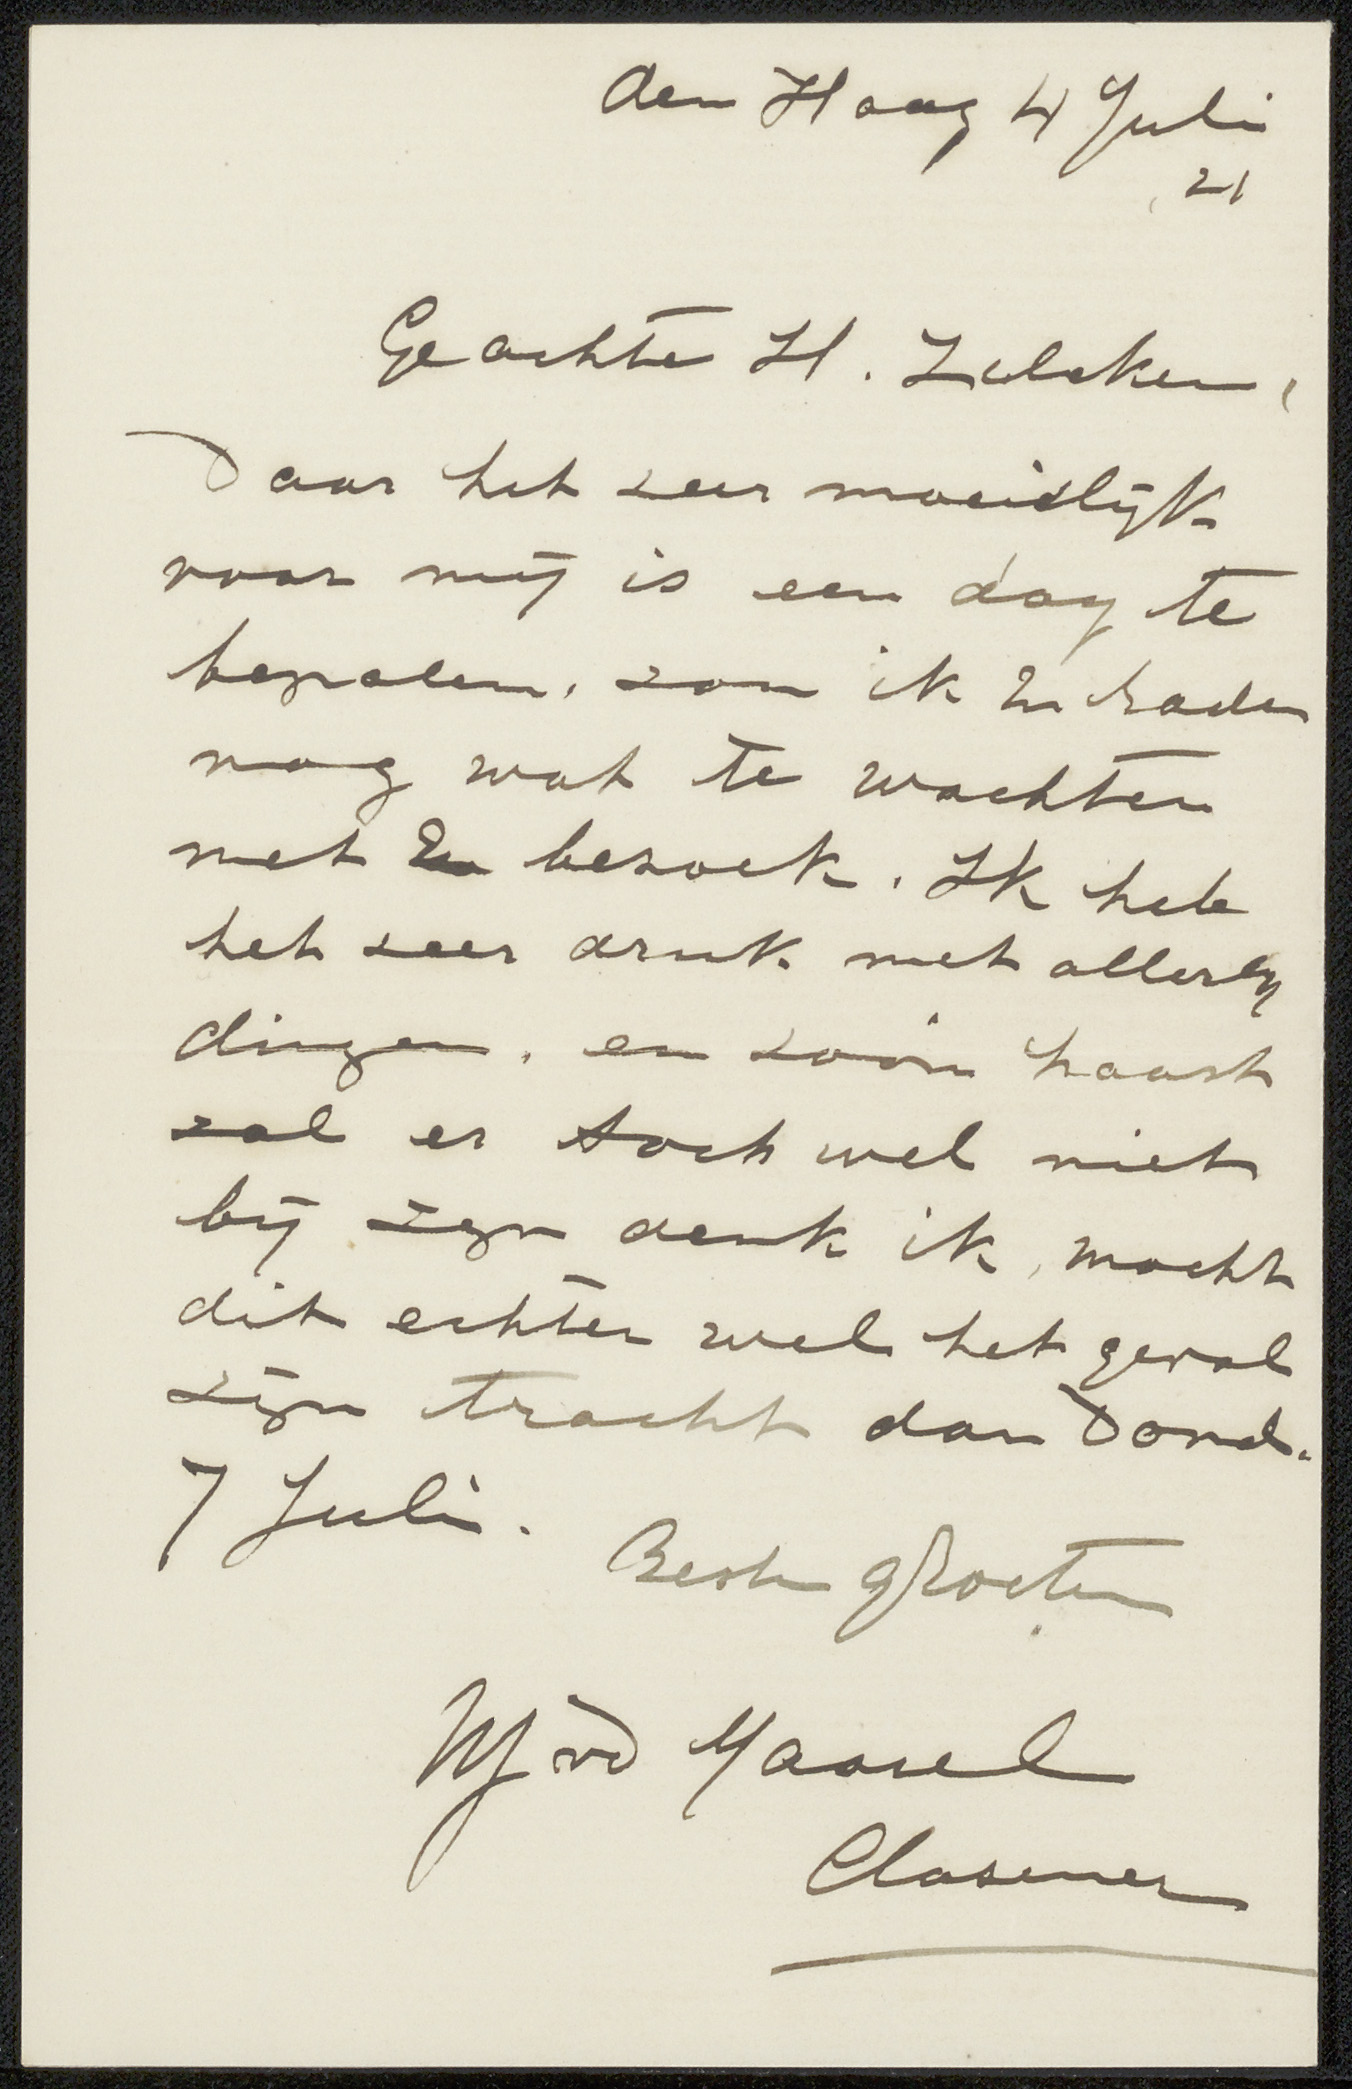 den Haag 4 Juli
21
Geachte H. Zilcken,
Daar het zeer moeielijk
voor mij is een dag te
bepalen, zou ik U raden
nog wat te wachten
met Uw bezoek. Ik heb
het zeer druk met allerlei
dingen, en zoo'n haast
zal er toch wel niet
bij zijn denk ik, mocht
dit echter wel het geval
zijn tracht dan Dond.
7 Juli.
Beste groeten
WJ vd Maarel
Clasener